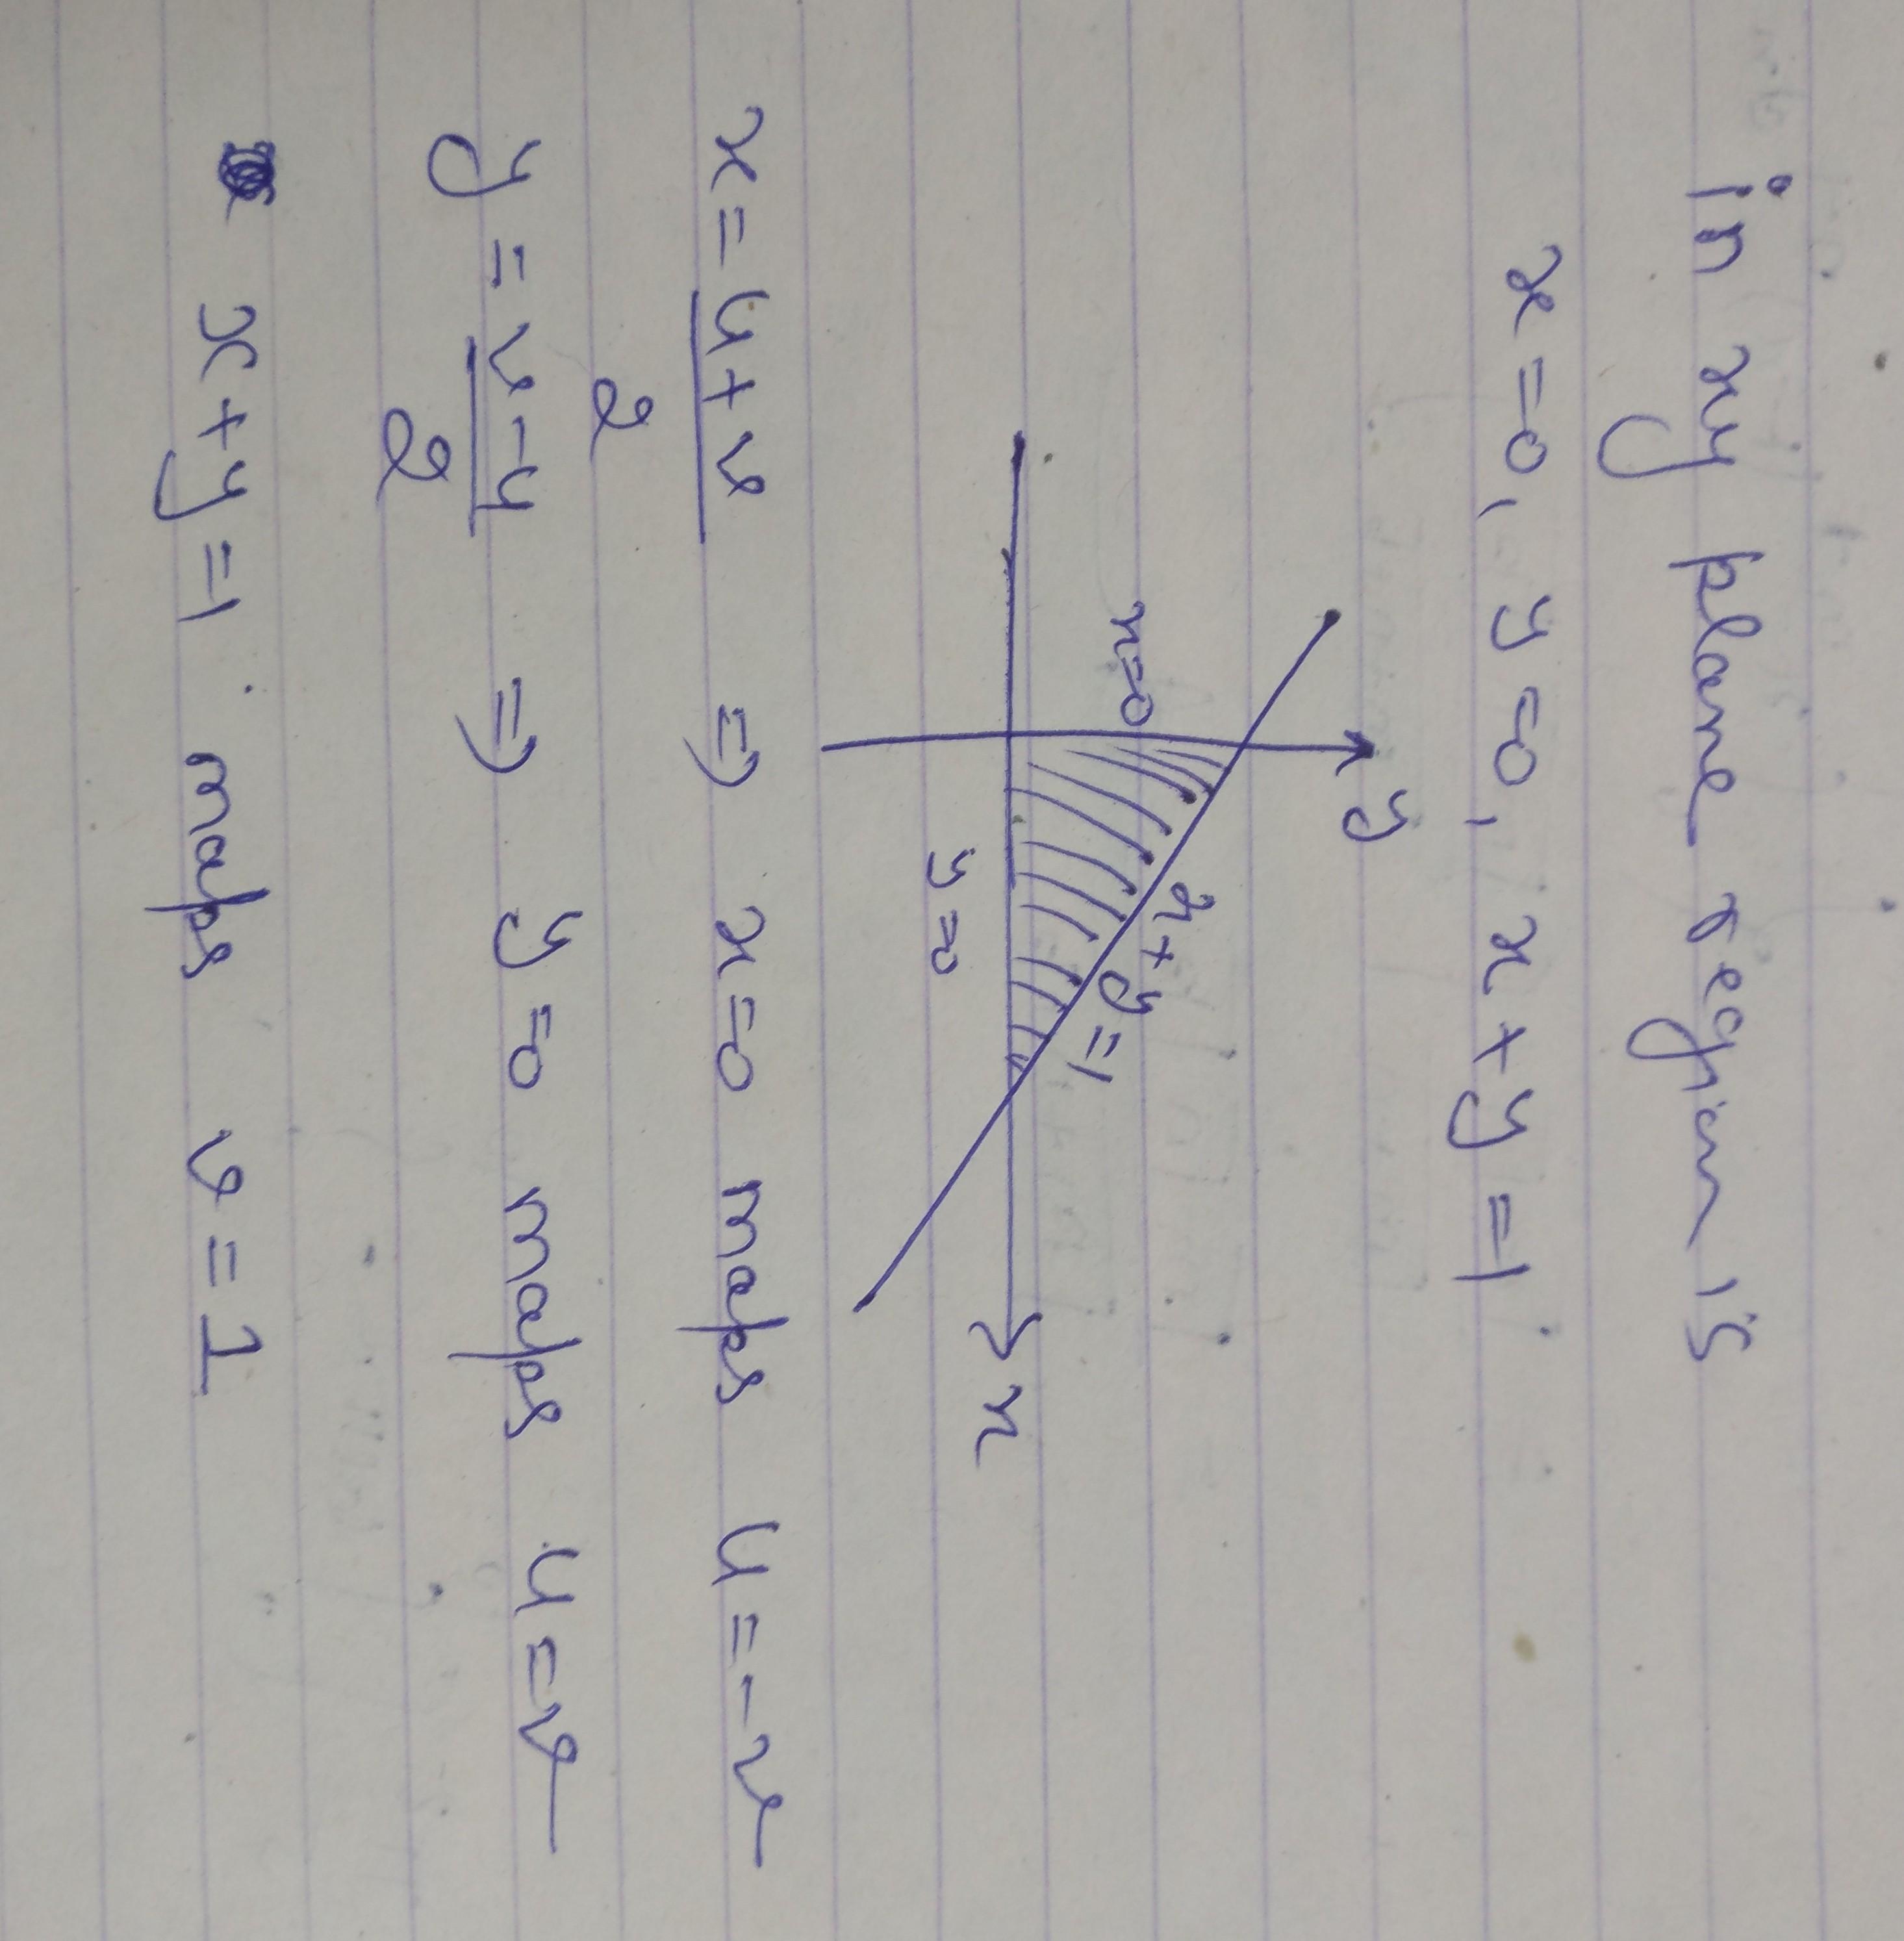 in xy plane region is
x=0, y=0, x+y=1
y
x=0
x+y=1
y=0
x
x = u+v/2 ⇒ x=0 maps u=-v
y = v-u/2 ⇒ y=0 maps u=v
x+y=1 maps v=1